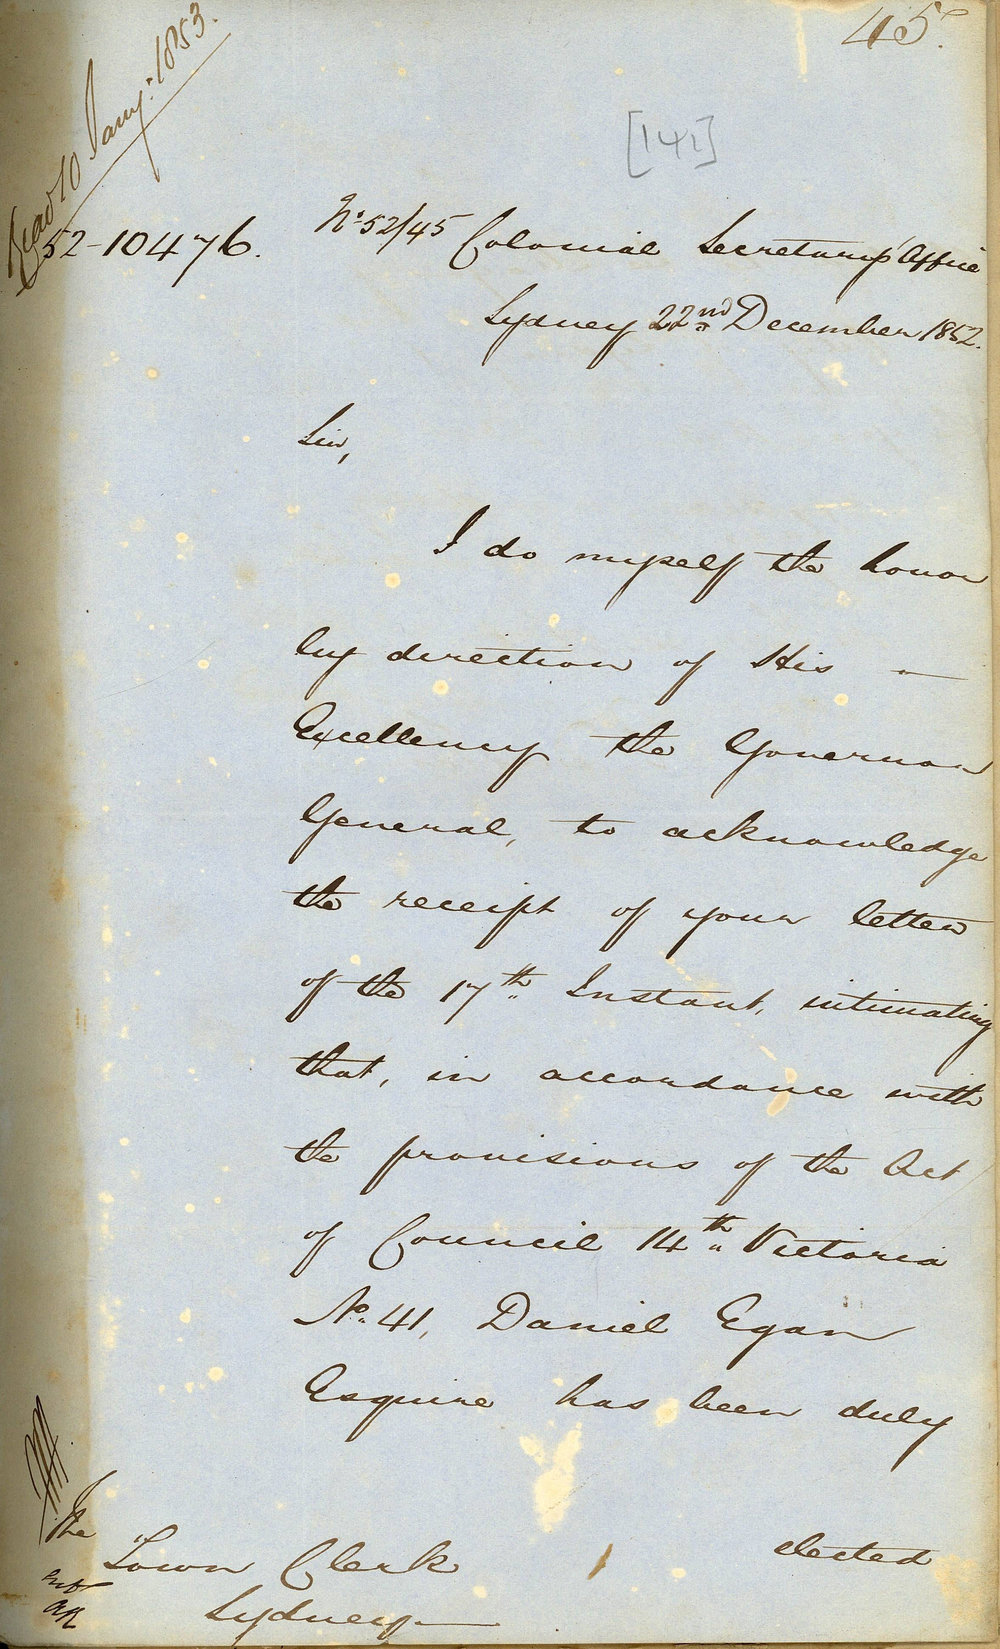 Read 10 Jany: 1853.
45.
[141]
52-10476.
No. 52/45 Colonial Secretary's Office
Sydney 22nd December 1852.
Sir,
I do myself the honor
by direction of His
Excellency the Governor
General, to acknowledge
the receipt of your letter
of the 17th Instant, intimating
that, in accordance with
the provisions of the Act
of Council 14th Victoria
No. 41, Daniel Egan
Esquire has been duly
elected
The
Town Clerk
Sydney